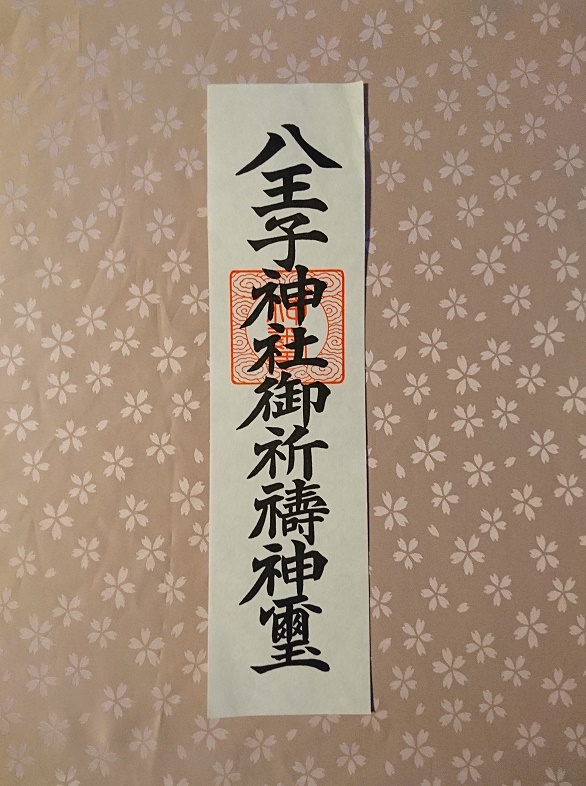 八王子神社御祈禱神璽